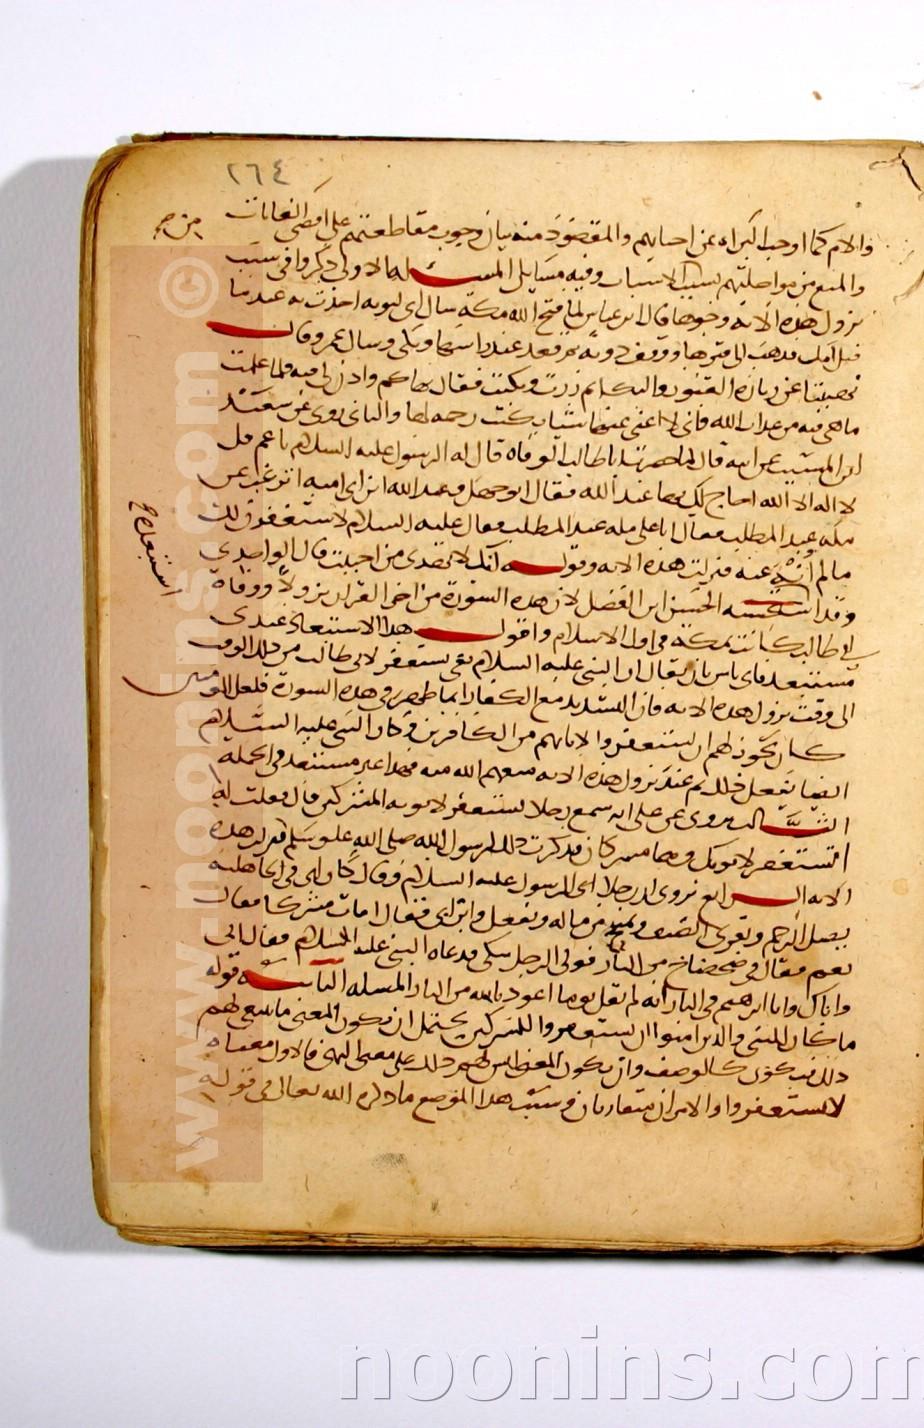 ٢٦٤
والام كما اوجب البراه عن احيايهم والمقصود منه بيان وجوب مقاطعتهم على اقصى الغايات
والمنع من مواصلتهم بسبب من الاسباب وفيه مسايل المسئله الاولى ذكروا فى سبب
نزول هذه الايه وجوها قال ابن عباس لما فتح الله مكة سال اى ابويه احدث به عهدا
قيل امك فذهب الى قبرها ووقف دونه ثم قعد عند راسها وبكى وسال عمر وقال
نهيتنا عن زياره القبور والبكا ثم زرت وبكيت فقال بها كم واذن لى فيه فلما علمت
ما هى فيه من عذاب الله فانى لا اغنى عنها شيا بكيت رحمه لها والثانى روى عن سعيد
ابن المسيب عن ابيه قال لما حضرت ابا طالب الوفاه قال له الرسول عليه السلام يا عم قل
لا اله الا الله احاج لك بها عند الله فقال ابو جهل وعبد الله ابن ابى اميه اترغب عن
مله عبد المطلب فقال انا على مله عبد المطلب فقال عليه السلام لاستغفرن لك
ما لم انه عنه فنزلت هذه الايه وقوله انك لا تهدى من احببت قال الواحدى
وقد استبعده الحسين ابن الفضل لان هذه السورة من اخر القران نزولا ووفاة
ابى طالب كانت بمكة فى اول الاسلام واقول هذا الاستبعاد عندى
مستبعد فاى باس ان يقال ان النبى عليه السلام بقى يستغفر لابى طالب من ذلك الوقت
الى وقت نزول هذه الايه فان التشديد مع الكفار انما ظهر فى هذه السورة فلعل المومنين
كان يجوز لهم ان يستغفروا لابايهم من الكافرين وكان النبى عليه السلام
ايضا يفعل ذلك ثم عند نزول هذه الايه منعهم الله منه فهذا غير مستبعد فى الجمله
الثالث يروى عن على انه سمع رجلا يستغفر لابويه المشركين قال فقلت له
اتستغفر لابويك وهما مشركان فذكرت ذلك لرسول الله صلى الله عليه وسلم فنزلت هذه
الايه الرابع يروى ان رجلا اتى الرسول عليه السلام وقال كان ابى فى الجاهليه
يصل الرحم ويقرى الضيف ويمنح من ماله وتفعل واين ابى فقال امات مشركا فقال
نعم فقال فى ضحضاح من النار فولى الرجل يبكى فدعاه النبى عليه السلام فقال ابى
واباك وابا ابرهيم فى النار انه لم يقل يوما اعوذ بالله من النار المسله الثانيه قوله
ما كان للنبى والذين امنوا ان يستغفروا للمشركين يحتمل ان يكون المعنى ما ينبغى لهم
ذلك فيكون كالوصف وان يكون المعنى ليس لهم ذلك على معنى النهى فالاول معناه
لا يستغفروا والامران متقاربان وسبب هذا الموضع ما ذكره الله تعالى فى قوله